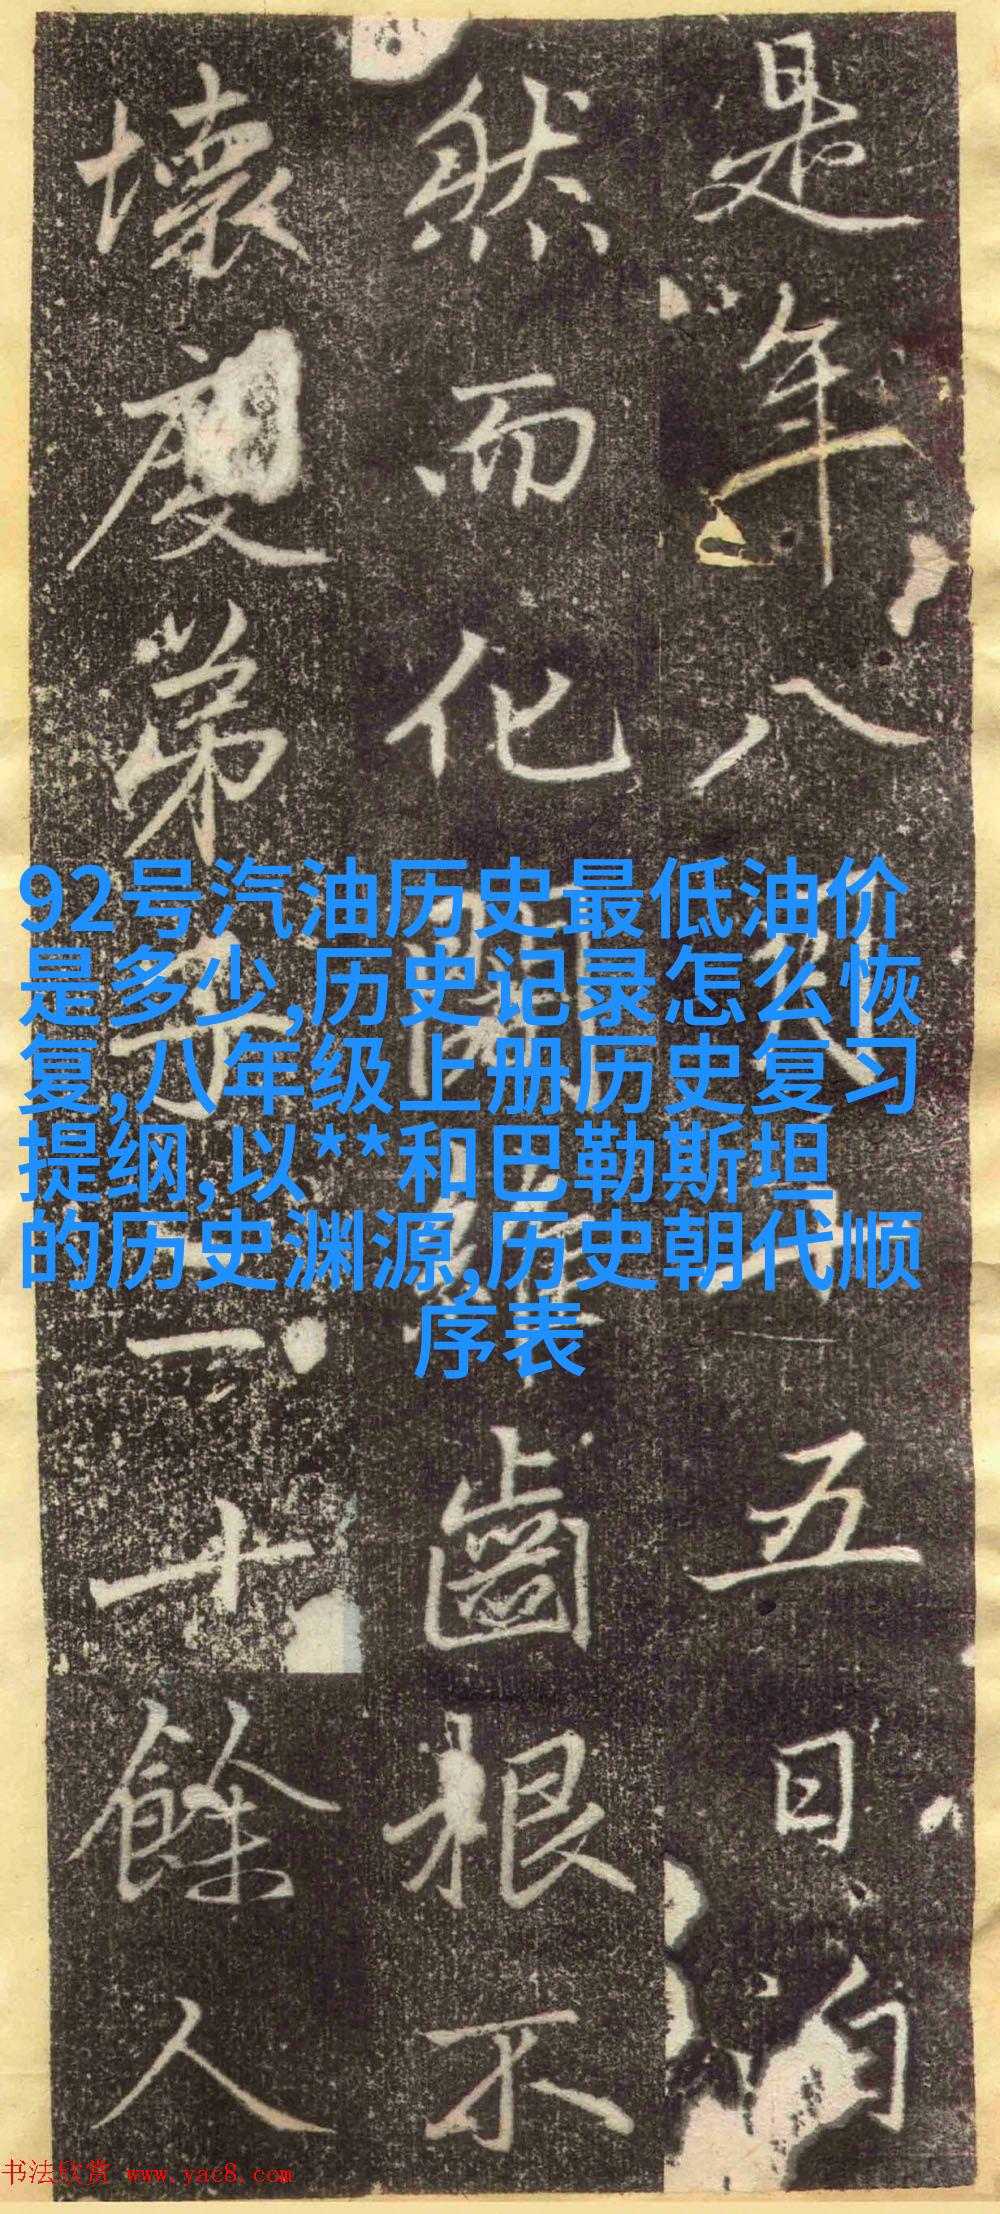 是年八五日自
然而化齒根不
壞度弟子一十餘人
92号汽油历史最低油价
是多少,历史记录怎么恢
复,八年级上册历史复习
提纲,以**和巴勒斯坦
的历史渊源,历史朝代顺
序表
书法欣赏 www.yac8.com